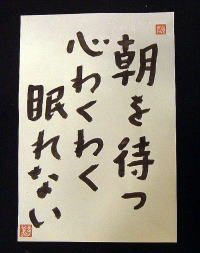 朝を待つ
心わくわく
眠れない